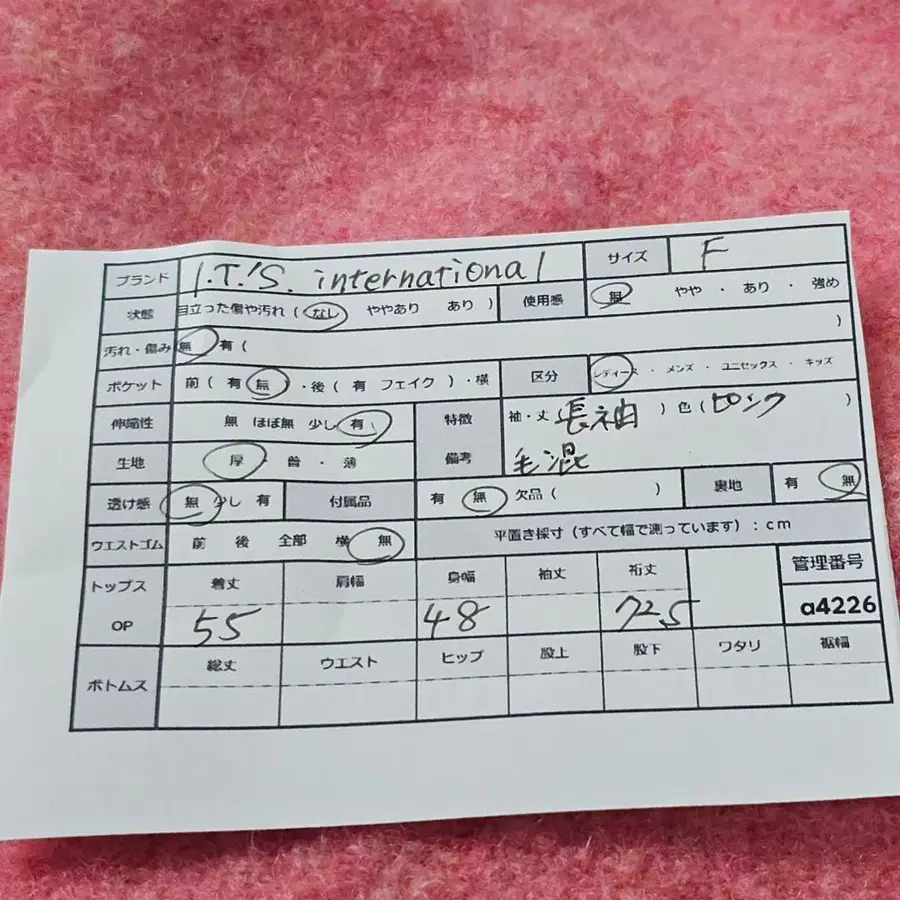 ブランド I.T.'S. international サイズ F
状態 目立った傷や汚れ ( なし ややあり あり ) 使用感 無 やや ・ あり ・ 強め
汚れ・傷み 無 有 ( )
ポケット 前 ( 有 無 ) ・後 ( 有 フェイク ) ・横 区分 レディース ・ メンズ ・ ユニセックス ・ キッズ
伸縮性 無 ほぼ無 少し 有 特徴 袖・丈 長袖 ) 色 ( ピンク )
生地 厚 ・ 普 ・ 薄 備考 毛混
透け感 無 少し 有 付属品 有 無 欠品 ( ) 裏地 有 無
ウエストゴム 前 後 全部 横 無 平置き採寸 (すべて幅で測っています) : cm
トップス 着丈 肩幅 身幅 袖丈 裄丈 管理番号
OP 55 48 72.5 a4226
ボトムス 総丈 ウエスト ヒップ 股上 股下 ワタリ 裾幅